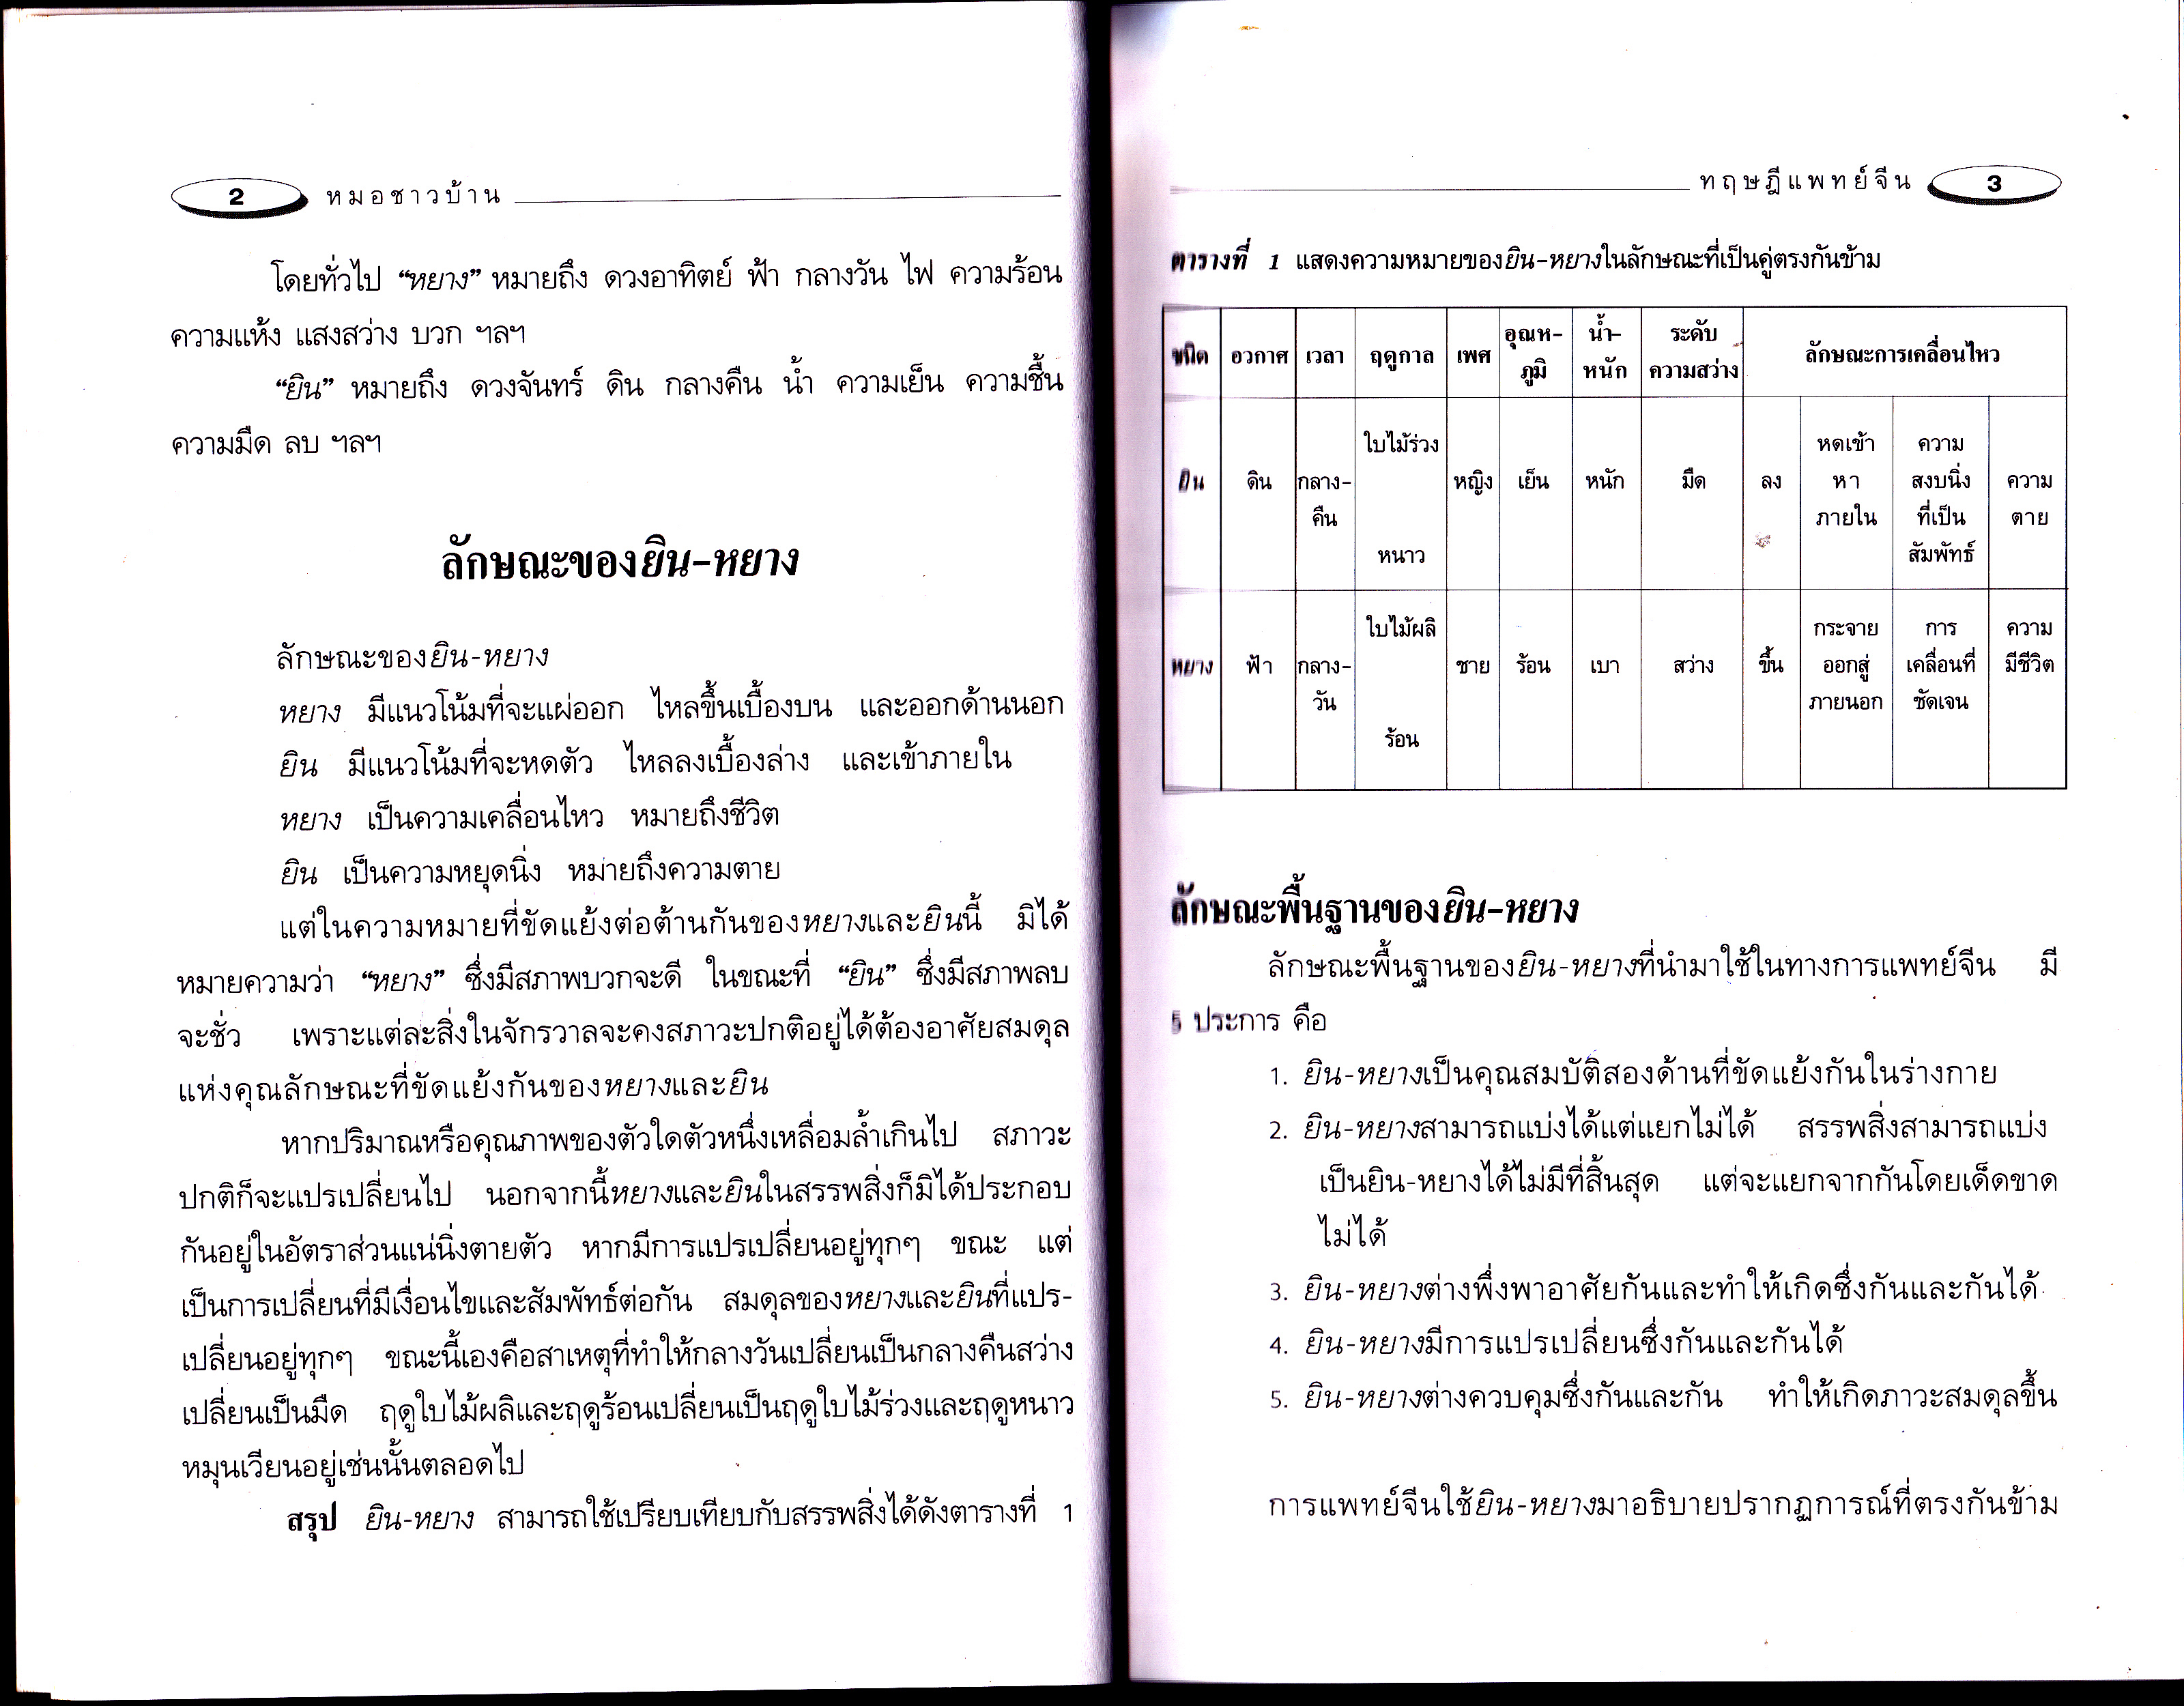 2 หมอชาวบ้าน
โดยทั่วไป “หยาง” หมายถึง ดวงอาทิตย์ ฟ้า กลางวัน ไฟ ความร้อน
ความแห้ง แสงสว่าง บวก ฯลฯ
“ยิน” หมายถึง ดวงจันทร์ ดิน กลางคืน น้ำ ความเย็น ความชื้น
ความมืด ลบ ฯลฯ
ลักษณะของยิน-หยาง
ลักษณะของยิน-หยาง
หยาง มีแนวโน้มที่จะแผ่ออก ไหลขึ้นเบื้องบน และออกด้านนอก
ยิน มีแนวโน้มที่จะหดตัว ไหลลงเบื้องล่าง และเข้าภายใน
หยาง เป็นความเคลื่อนไหว หมายถึงชีวิต
ยิน เป็นความหยุดนิ่ง หมายถึงความตาย
แต่ในความหมายที่ขัดแย้งต่อต้านกันของหยางและยินนี้ มิได้
หมายความว่า “หยาง” ซึ่งมีสภาพบวกจะดี ในขณะที่ “ยิน” ซึ่งมีสภาพลบ
จะชั่ว เพราะแต่ละสิ่งในจักรวาลจะคงสภาวะปกติอยู่ได้ต้องอาศัยสมดุล
แห่งคุณลักษณะที่ขัดแย้งกันของหยางและยิน
หากปริมาณหรือคุณภาพของตัวใดตัวหนึ่งเหลื่อมล้ำเกินไป สภาวะ
ปกติก็จะแปรเปลี่ยนไป นอกจากนี้หยางและยินในสรรพสิ่งก็มิได้ประกอบ
กันอยู่ในอัตราส่วนแน่นิ่งตายตัว หากมีการแปรเปลี่ยนอยู่ทุกๆ ขณะ แต่
เป็นการเปลี่ยนที่มีเงื่อนไขและสัมพัทธ์ต่อกัน สมดุลของหยางและยินที่แปร-
เปลี่ยนอยู่ทุกๆ ขณะนี้เองคือสาเหตุที่ทำให้กลางวันเปลี่ยนเป็นกลางคืนสว่าง
เปลี่ยนเป็นมืด ฤดูใบไม้ผลิและฤดูร้อนเปลี่ยนเป็นฤดูใบไม้ร่วงและฤดูหนาว
หมุนเวียนอยู่เช่นนั้นตลอดไป
สรุป ยิน-หยาง สามารถใช้เปรียบเทียบกับสรรพสิ่งได้ดังตารางที่ 1
ทฤษฎีแพทย์จีน 3
ตารางที่ 1 แสดงความหมายของยิน-หยางในลักษณะที่เป็นคู่ตรงกันข้าม
อุณห- น้ำ- ระดับ
ชนิด อวกาศ เวลา ฤดูกาล เพศ ลักษณะการเคลื่อนไหว
ภูมิ หนัก ความสว่าง
ใบไม้ร่วง หดเข้า ความ
ยิน ดิน กลาง- หญิง เย็น หนัก มืด ลง หา สงบนิ่ง ความ
คืน ภายใน ที่เป็น ตาย
หนาว สัมพัทธ์
ใบไม้ผลิ กระจาย การ ความ
หยาง ฟ้า กลาง- ชาย ร้อน เบา สว่าง ขึ้น ออกสู่ เคลื่อนที่ มีชีวิต
วัน ภายนอก ชัดเจน
ร้อน
ลักษณะพื้นฐานของยิน-หยาง
ลักษณะพื้นฐานของยิน-หยางที่นำมาใช้ในทางการแพทย์จีน มี
5 ประการ คือ
1. ยิน-หยางเป็นคุณสมบัติสองด้านที่ขัดแย้งกันในร่างกาย
2. ยิน-หยางสามารถแบ่งได้แต่แยกไม่ได้ สรรพสิ่งสามารถแบ่ง
เป็นยิน-หยางได้ไม่มีที่สิ้นสุด แต่จะแยกจากกันโดยเด็ดขาด
ไม่ได้
3. ยิน-หยางต่างพึ่งพาอาศัยกันและทำให้เกิดซึ่งกันและกันได้
4. ยิน-หยางมีการแปรเปลี่ยนซึ่งกันและกันได้
5. ยิน-หยางต่างควบคุมซึ่งกันและกัน ทำให้เกิดภาวะสมดุลขึ้น
การแพทย์จีนใช้ยิน-หยางมาอธิบายปรากฏการณ์ที่ตรงกันข้าม